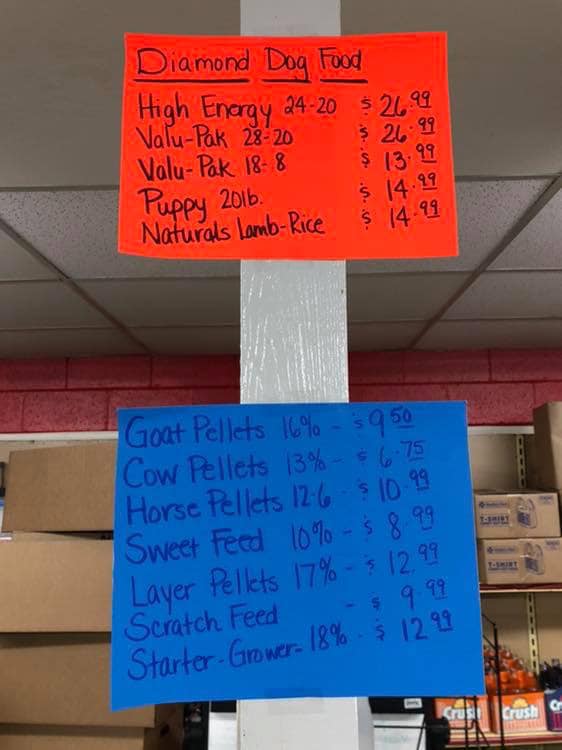 Diamond Dog Food
High Energy 24-20 $ 26.99
Valu-Pak 28-20 $ 26.99
Valu-Pak 18-8 $ 13.99
Puppy 20lb. $ 14.99
Naturals Lamb-Rice $ 14.99
Goat Pellets 16% - $ 9 50
Cow Pellets 13% - $ 6.75
Horse Pellets 12.6 . $ 10.99
Sweet Feed 10% - $ 8.99
Layer Pellets 17% - $ 12.99
Scratch Feed - $ 9.99
Starter-Grower- 18% . $ 12 99
T-SHIRT
T-SHIRT
Crush
Crush